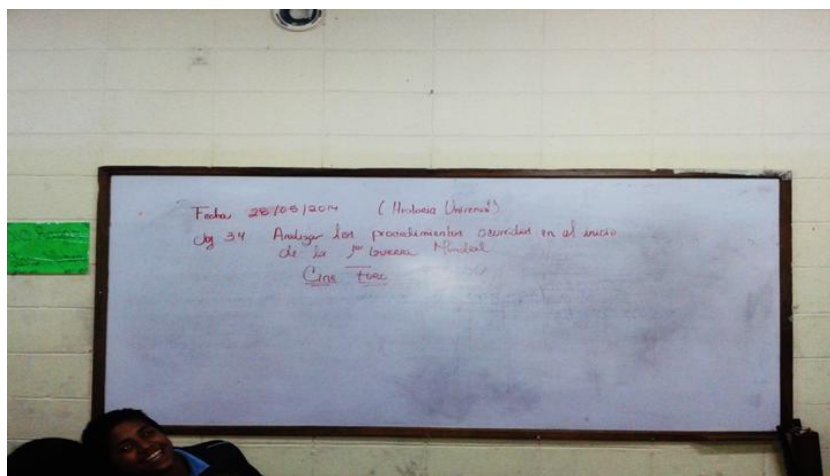 Fecha 28/05/2014 (Historia Universal)
Obj 34 Analizar los procedimientos ocurridos en el inicio
de la 1ra Guerra Mundial
Cine Foro